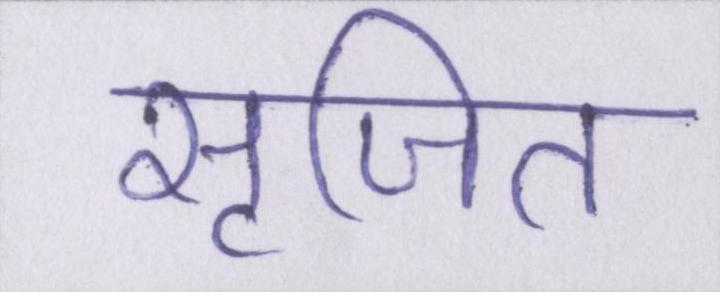 सृजित